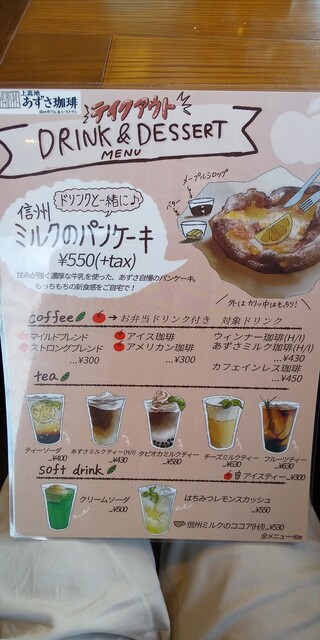 上高地
あずさ珈琲
テイクアウト
DRINK & DESSERT
MENU
ドリンクと一緒に♪
信州
ミルクのパンケーキ
¥550(+tax)
甘みが強く濃厚な牛乳を使った、あずさ自慢のパンケーキ。
もっちもちの新食感をご自宅で!
メープルシロップ
バター
外はカリッ中はもっちり!
coffee → お弁当ドリンク付き 対象ドリンク
マイルドブレンド
ストロングブレンド
...¥300
アイス珈琲
アメリカン珈琲
...¥300
ウィンナー珈琲(H/I)
あずさミルク珈琲(H/I)
...¥430
カフェインレス珈琲
...¥450
tea
ティーソーダ
...¥400
あずさミルクティー(H/I)
...¥430
タピオカミルクティー
...¥580
チーズミルクティー
...¥630
フルーツティー
...¥630
アイスティー...¥300
soft drink
クリームソーダ
...¥500
はちみつレモンスカッシュ
...¥550
信州ミルクのココア(H/I)...¥530